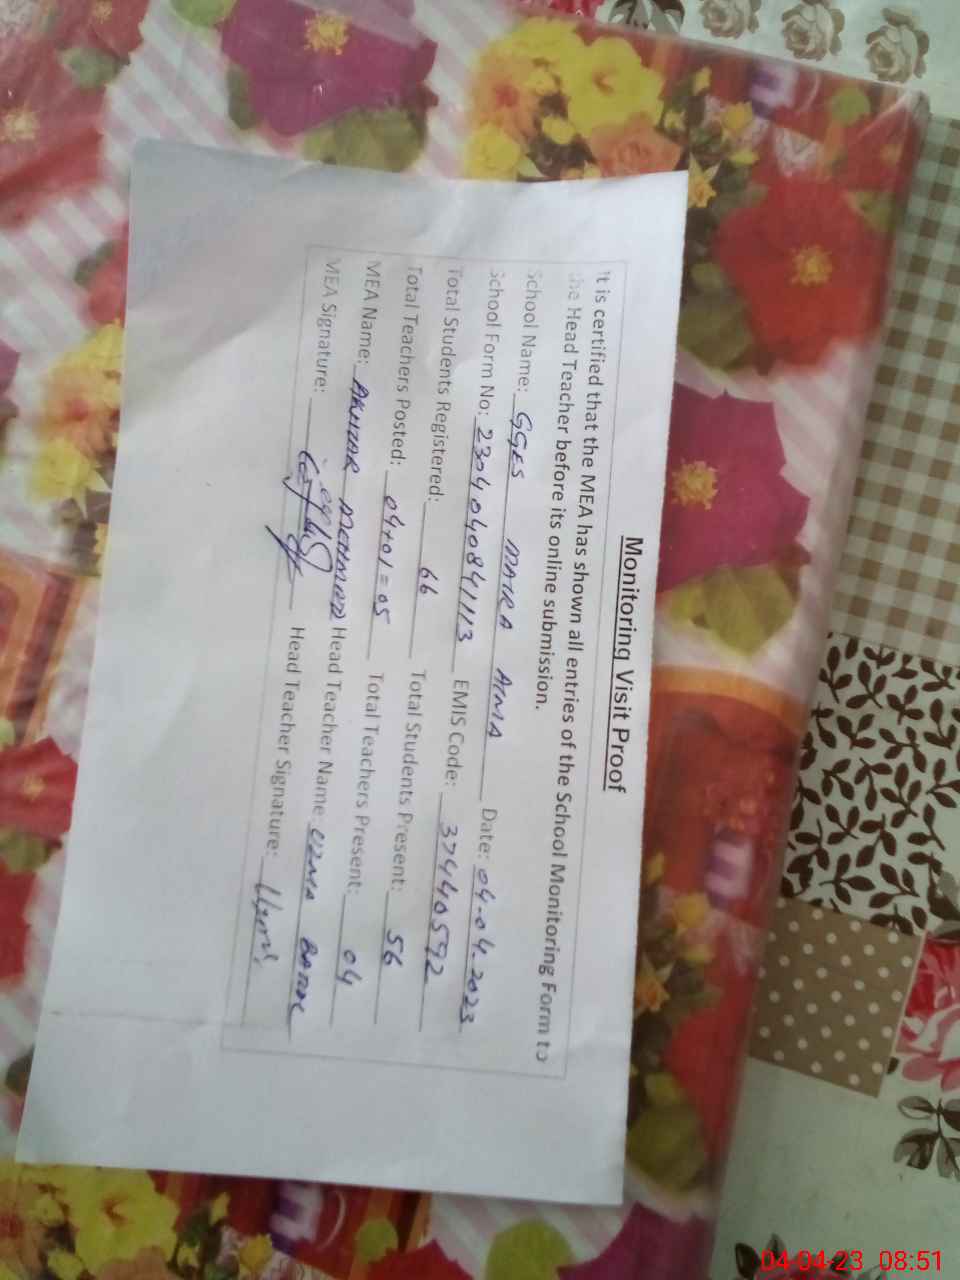 Monitoring Visit Proof
It is certified that the MEA has shown all entries of the School Monitoring Form to
the Head Teacher before its online submission.
School Name: GGES MATRA AIMA Date: 04.04.2023
School Form No: 2304040841113 EMIS Code: 37440592
Total Students Registered: 66 Total Students Present: 56
Total Teachers Posted: 04+01=05 Total Teachers Present: 04
MEA Name: AKHTAR MEHMOOD Head Teacher Name: UZMA
MEA Signature: Head Teacher Signature:
04-04-23 08:51